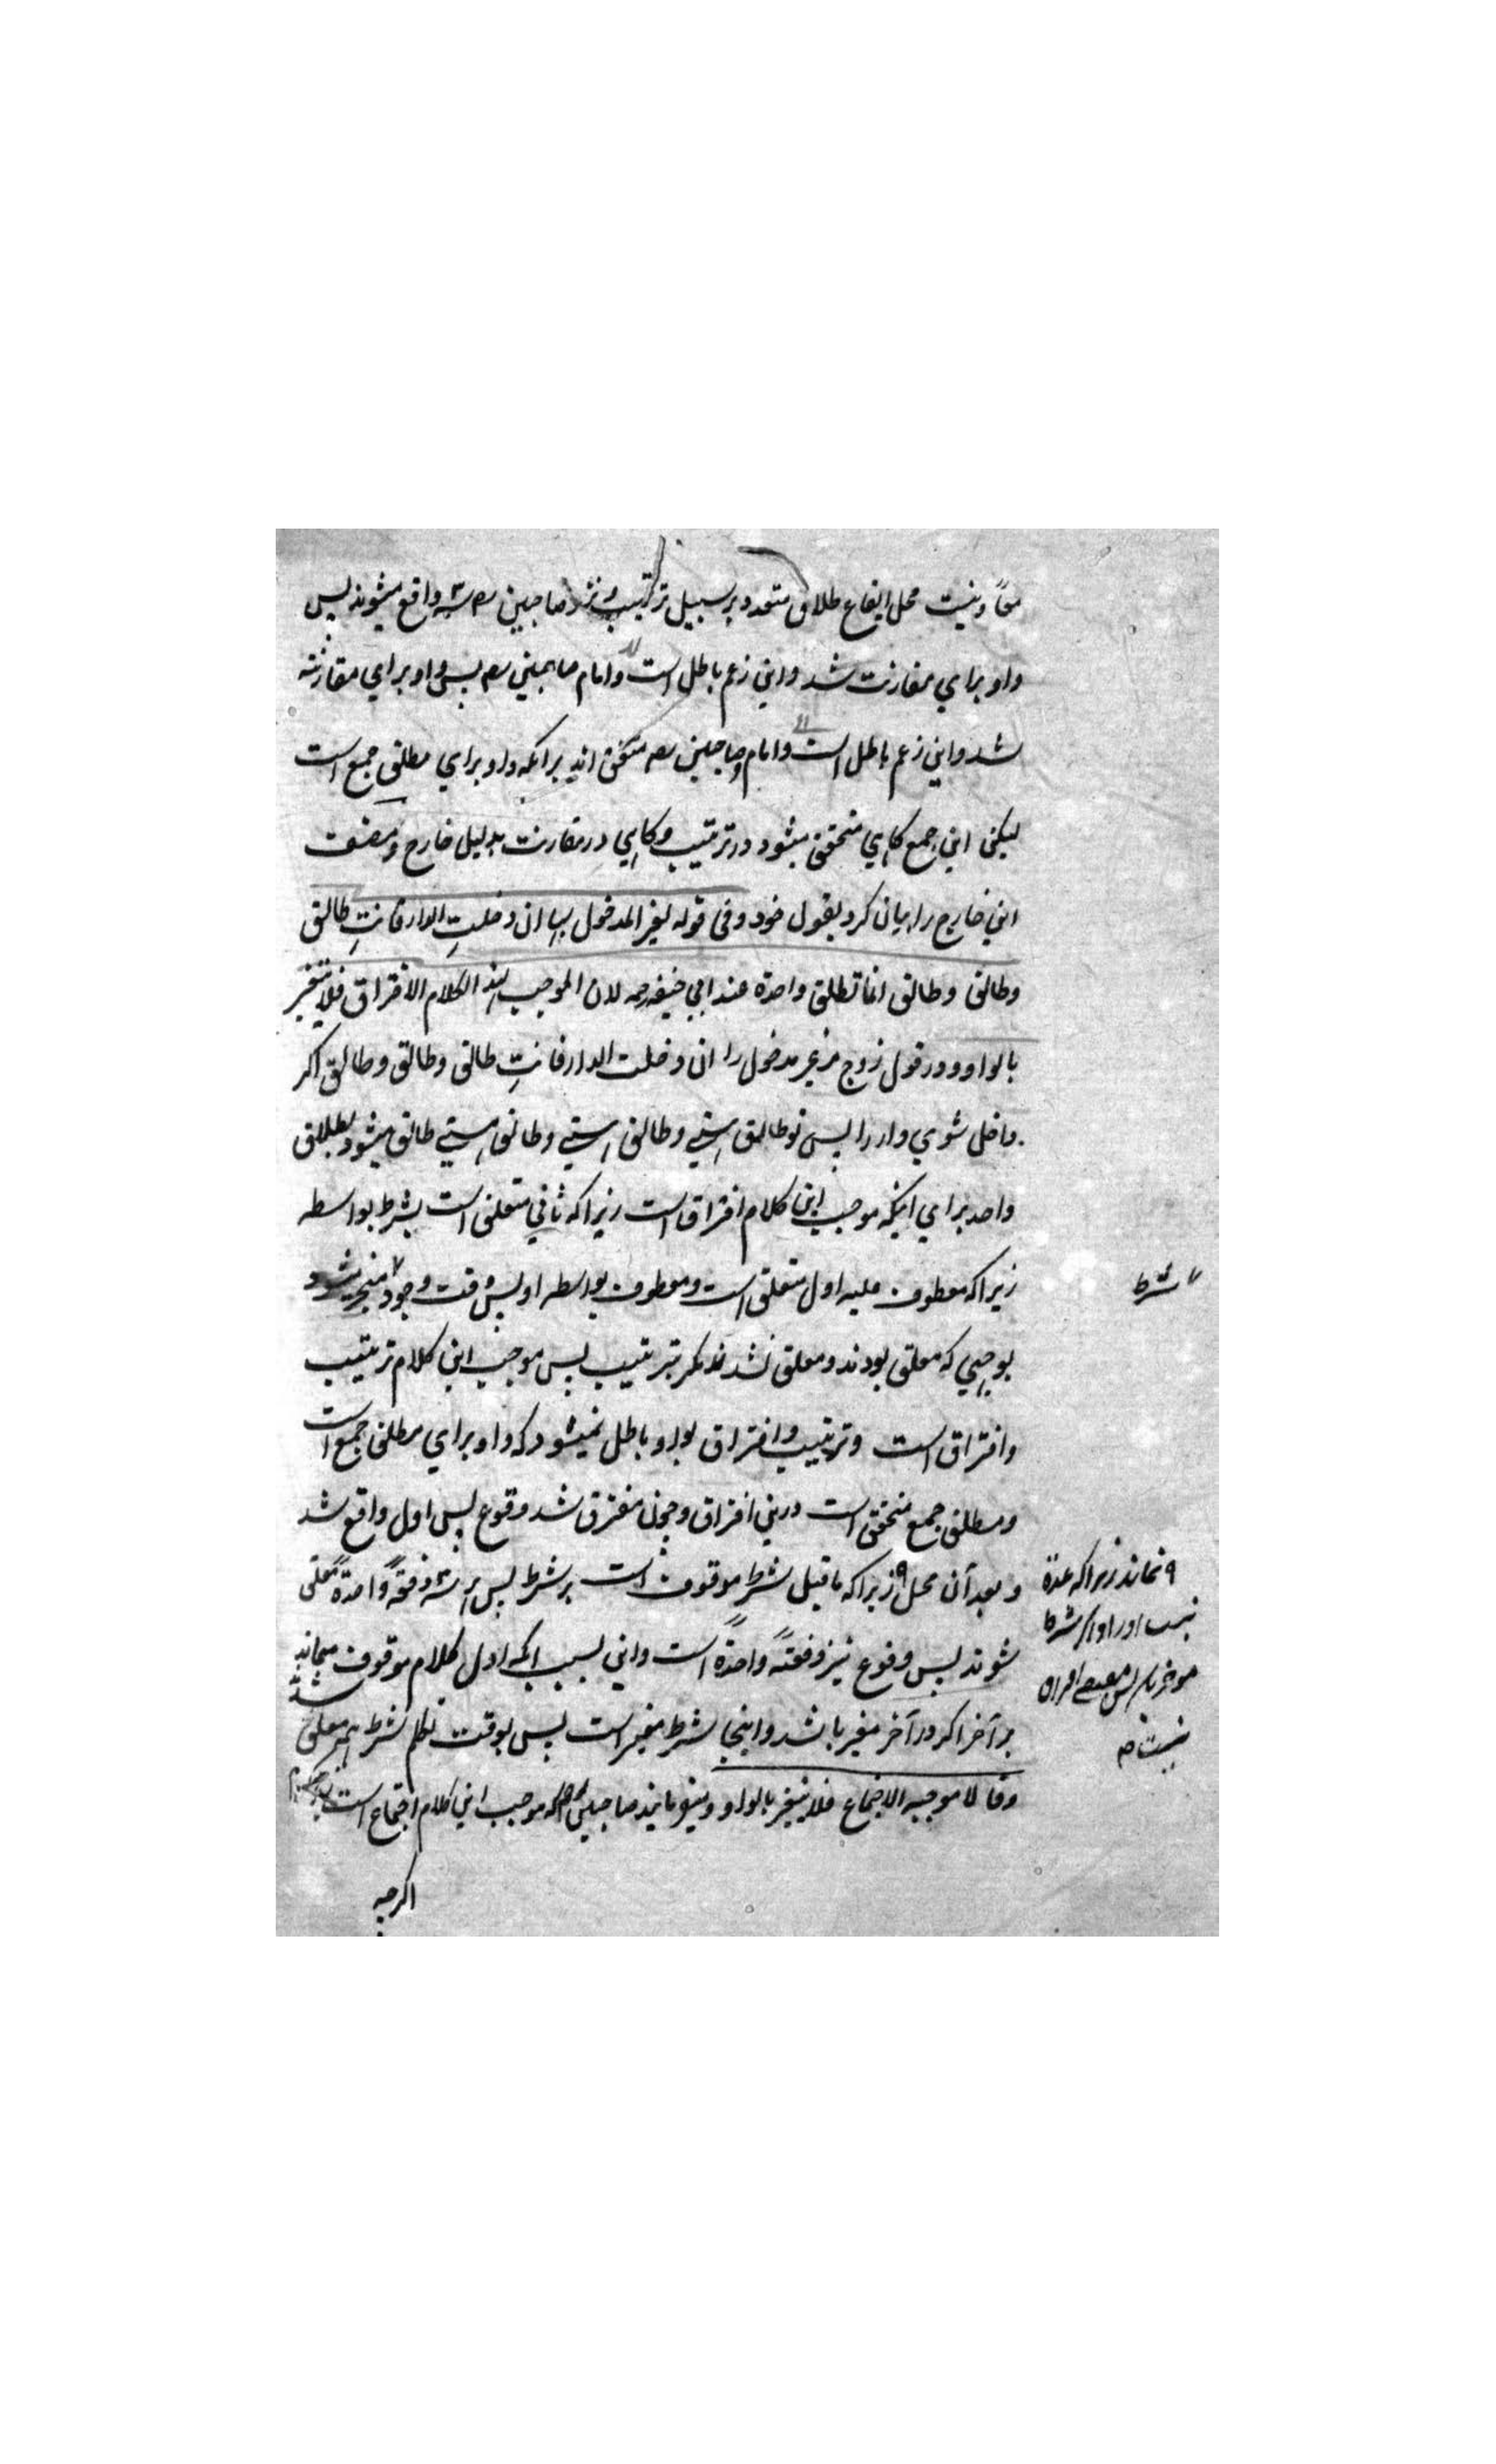 معاً و نیست محل ایقاع طلاق متعدد بر سبیل ترتیب و نزد صاحبین رح سه واقع میشوند پس
واو برای مقارنت شد و این زعم باطل است و امام صاحبین رح پس واو برای مقارنته
شد و این زعم باطل است و امام و صاحبین رح متفق اند برانکه واو برای مطلق جمع است
لیکن این جمع کاهی متحقق میشود در ترتیب و کاهی در مقارنت بدلیل خارج و مصنف
این خارج را بیان کرد بقول خود وفی قوله لغیر المدخول بها ان دخلتِ الدار فانتِ طالق
وطالق وطالق انما تطلق واحدة عند ابی حنیفه رحمه لان الموجب هذا الکلام الافتراق فلا یتغیر
بالواو و در قول زوج مر غیر مدخول را ان دخلت الدار فانتِ طالق وطالق وطالق اکر
داخل شوی دار را پس تو طالق استی و طالق استی و طالق استی طالق میشود بطلاق
واحد برای اینکه موجب این کلام افتراق است زیراکه ثانی متعلق است بشرط بواسطه
زیراکه معطوف علیه اول متعلق است و معطوف بواسطه او پس وقت وجود منجر میشود
شرط
بوجهی که معلق بودند و معلق نشدند مکر بترتیب پس موجب این کلام ترتیب
و افتراق است و ترتیب و افتراق بواو باطل نمیشود که واو برای مطلق جمع است
و مطلق جمع متحقق است درین افتراق و چون مفترق شد وقوع پس اول واقع شد
و بعد آن محل زیراکه ماقبل شرط موقوف است بر شرط پس هر سه دفعةً واحدةً معلق
نماند زیراکه عدة
نیست او را و اکر شرط
موخر باشد پس افتراق
نیست
شوند پس وقوع نیز دفعتهً واحدةً است و این بسبب انکه اول کلام موقوف میماند
بر آخر اکر در آخر مغیر باشد و اینجا شرط مغیر است پس بوقت تکلم شرط هر سه معلق شد
وقالا موجبه الاجتماع فلا یتغیر بالواو و میفرمایند صاحبین رح که موجب این کلام اجتماع است
اکرچه